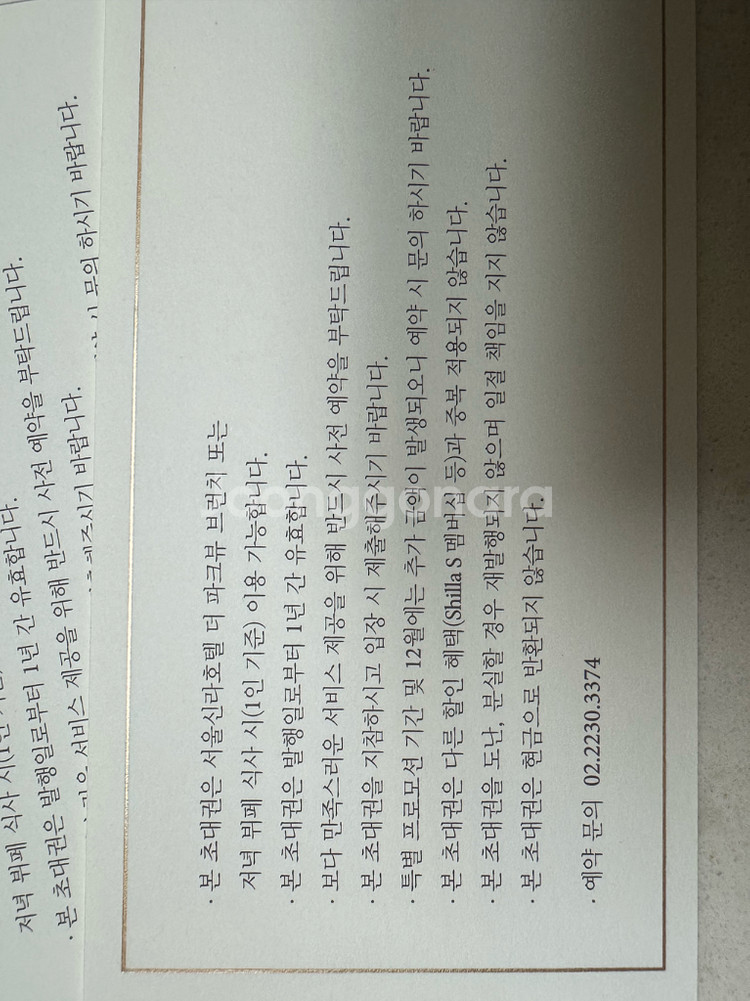 저녁 뷔페 식사 시(1인 기준)
· 본 초대권은 발행일로부터 1년 간 유효합니다.
서비스 제공을 위해 반드시 사전 예약을 부탁드립니다.
시기 바랍니다.
문의 하시기 바랍니다.
· 본 초대권은 서울신라호텔 더 파크뷰 브런치 또는
저녁 뷔페 식사 시(1인 기준) 이용 가능합니다.
· 본 초대권은 발행일로부터 1년 간 유효합니다.
· 보다 만족스러운 서비스 제공을 위해 반드시 사전 예약을 부탁드립니다.
· 본 초대권을 지참하시고 입장 시 제출해주시기 바랍니다.
· 특별 프로모션 기간 및 12월에는 추가 금액이 발생되오니 예약 시 문의 하시기 바랍니다.
· 본 초대권은 다른 할인 혜택(Shilla S 멤버십 등)과 중복 적용되지 않습니다.
· 본 초대권을 도난, 분실할 경우 재발행되지 않으며 일절 책임을 지지 않습니다.
· 본 초대권은 현금으로 반환되지 않습니다.
· 예약 문의 02.2230.3374
joonggonara